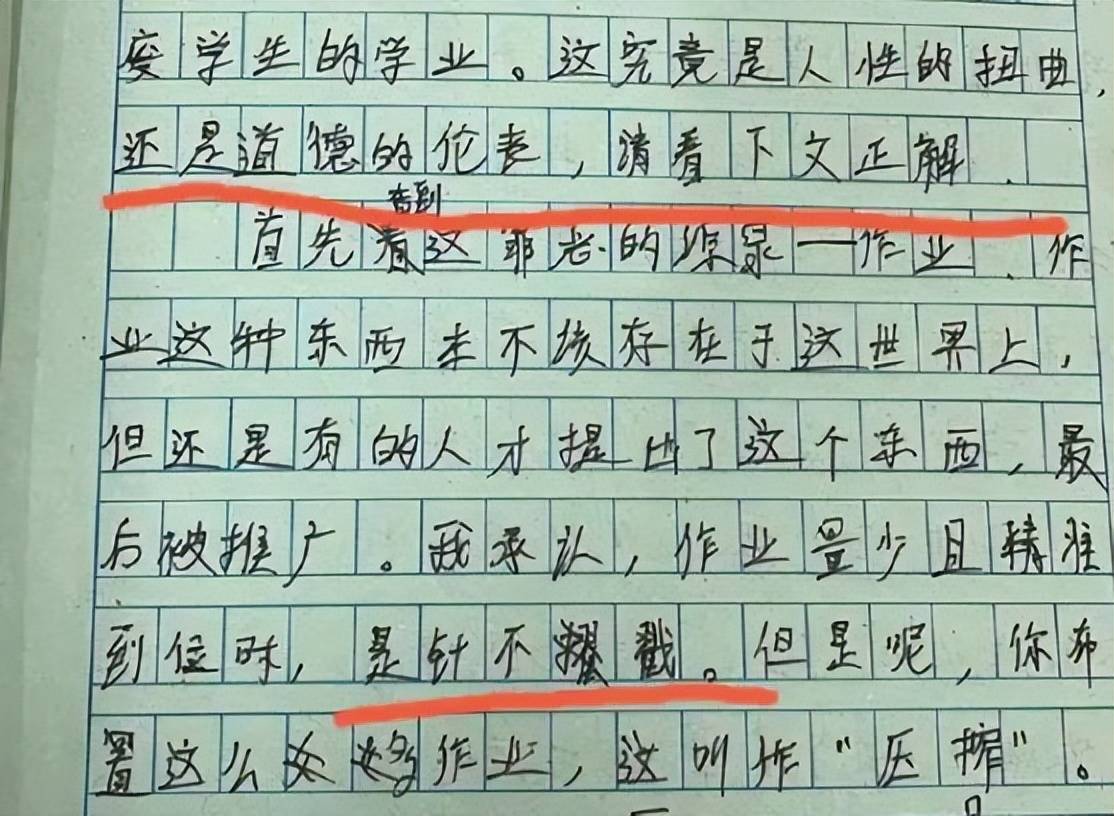 废学生的学业。这究竟是人性的扭曲，
还是道德的伦丧，请看下文正解.
首先看到这罪恶的源泉一作业.作
业这种东西本不该存在于这世界上，
但还是有的人才提出了这个东西，最
后被推广。我承认，作业量少且精准
到位时，是针不戳。但是呢，你布
置这么多作业，这叫作“压榨”。